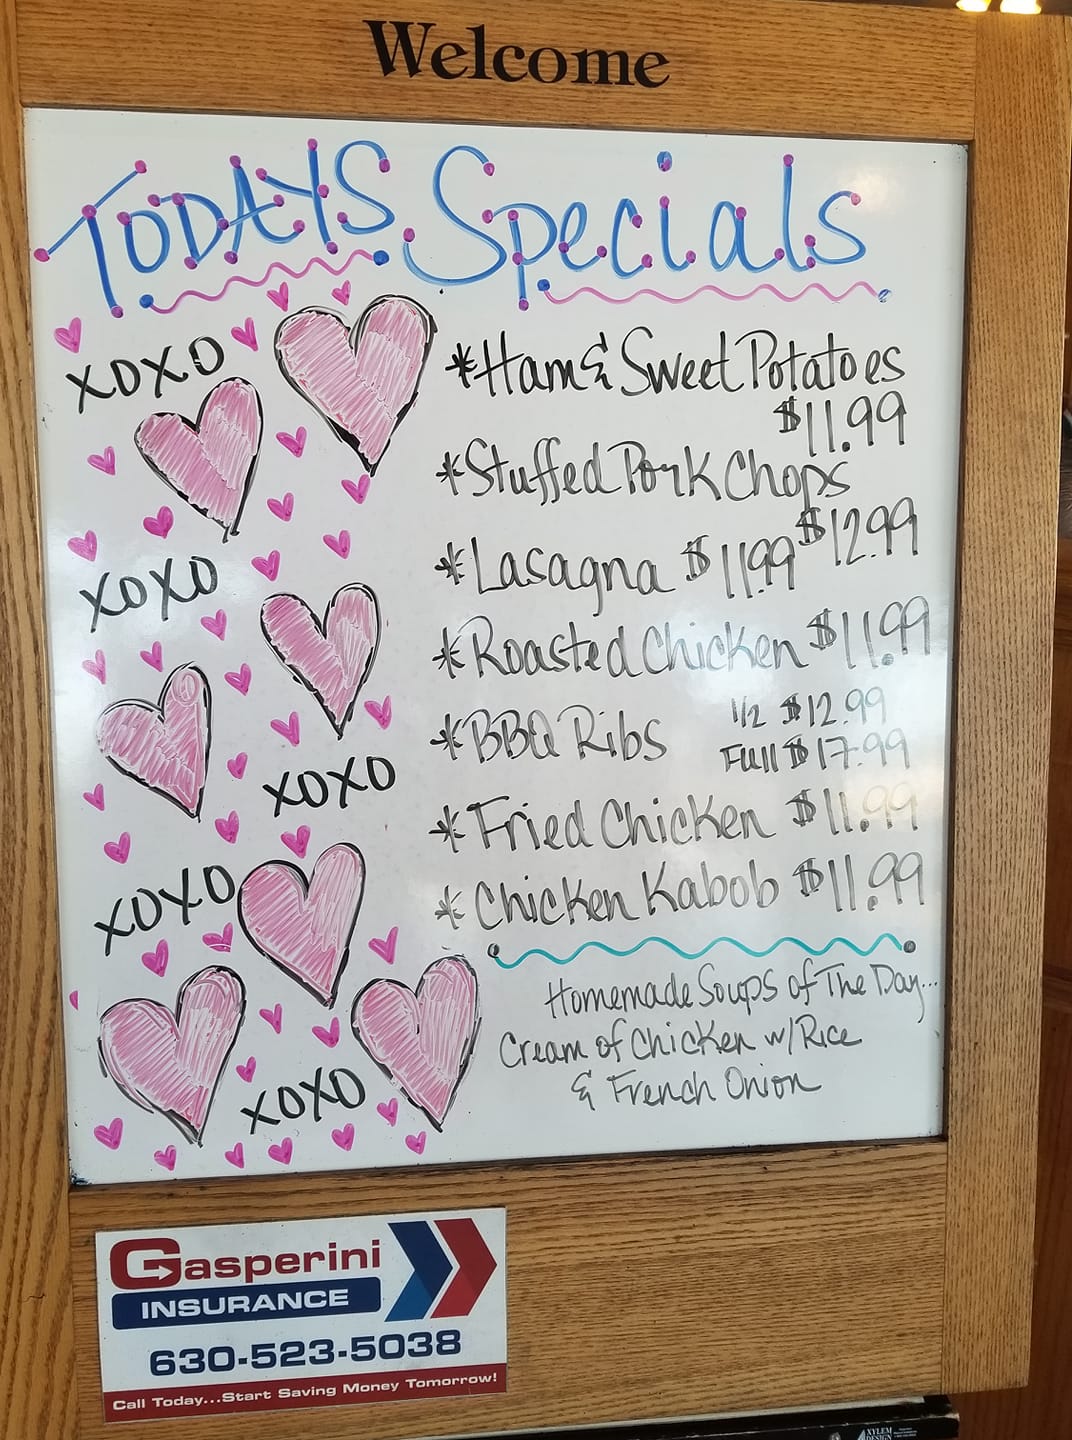 Welcome
TODAYS Specials
XOXO
XOXO
XOXO
XOXO
XOXO
*Ham & Sweet Potatoes
$11.99
*Stuffed Pork Chops
$12.99
*Lasagna $11.99
*Roasted Chicken $11.99
*BBQ Ribs 1/2 $12.99
Full $17.99
*Fried Chicken $11.99
*Chicken Kabob $11.99
Homemade Soups of The Day...
Cream of Chicken w/Rice
& French Onion
Gasperini
INSURANCE
630-523-5038
Call Today...Start Saving Money Tomorrow!
XYLEM
DESIGN